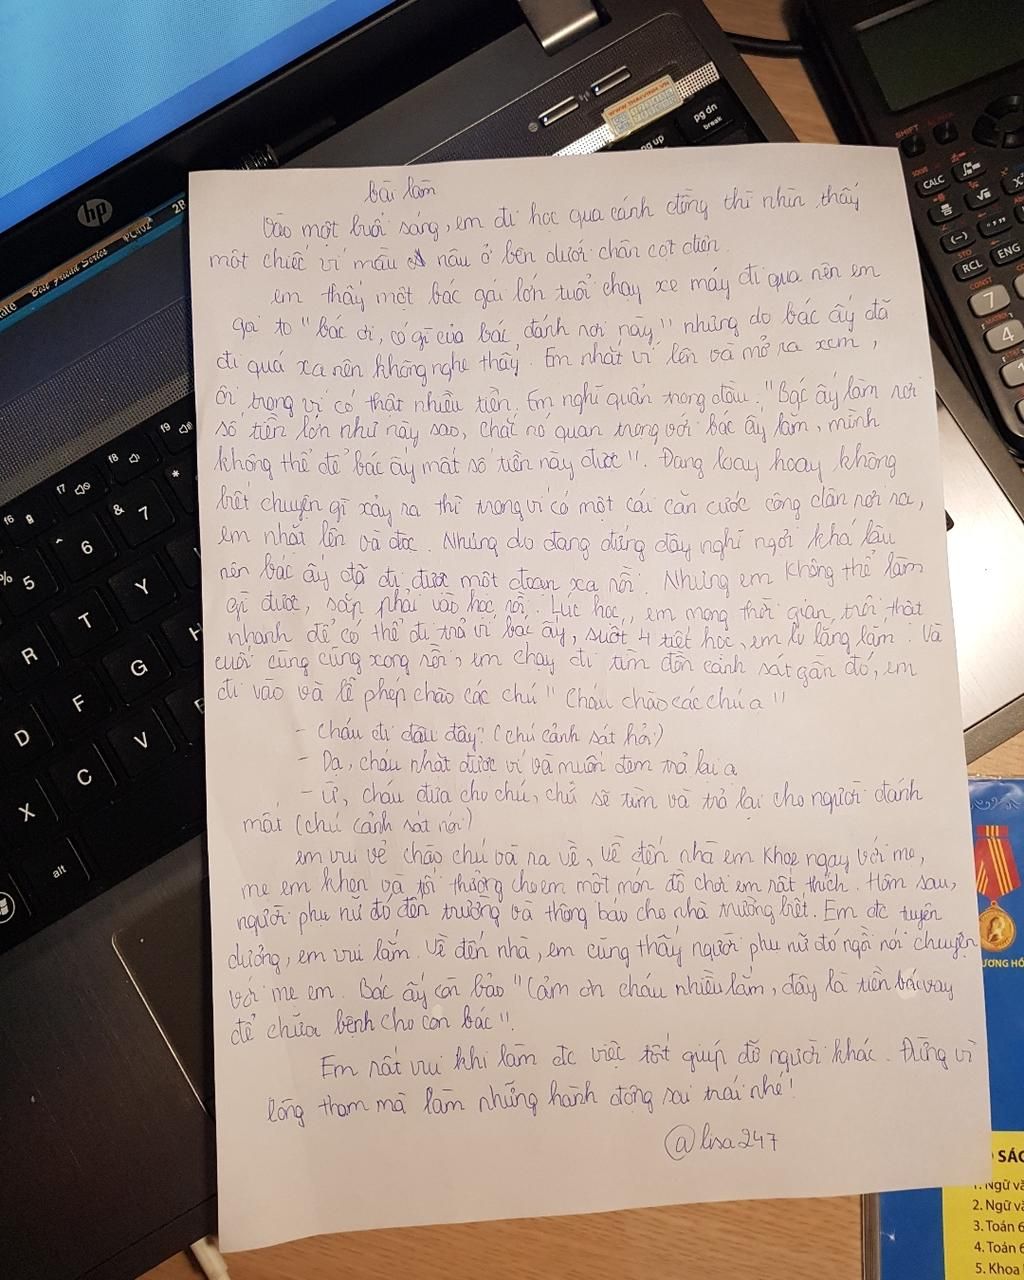 bài làm
Vào một buổi sáng, em đi học qua cánh đồng thì nhìn thấy
một chiếc ví màu nâu ở bên dưới chân cột điện.
em thấy một bác gái lớn tuổi chạy xe máy đi qua nên em
gọi to "bác ơi, có gì của bác, đánh rơi này" nhưng do bác ấy đã
đi quá xa nên không nghe thấy. Em nhặt ví lên và mở ra xem,
ôi trong ví có thật nhiều tiền. Em nghĩ quẩn trong đầu: "Bác ấy làm rơi
số tiền lớn như này sao, chắc nó quan trọng với bác ấy lắm, mình
không thể để bác ấy mất số tiền này được". Đang loay hoay không
biết chuyện gì xảy ra thì trong ví có một cái căn cước công dân rơi ra,
em nhặt lên và đọc. Nhưng do đang đứng đây nghĩ ngợi khá lâu
nên bác ấy đã đi được một đoạn xa rồi. Nhưng em không thể làm
gì được, sắp phải vào học rồi. Lúc học, em mong thời gian trôi thật
nhanh để có thể đi trả ví bác ấy, suốt 4 tiết học, em lo lắng lắm. Và
cuối cùng cũng xong rồi, em chạy đi tìm đồn cảnh sát gần đó, em
đi vào và lễ phép chào các chú "Cháu chào các chú ạ"
- Cháu đi đâu đây? (chú cảnh sát hỏi)
- Dạ, cháu nhặt được ví và muốn đem trả lại ạ
- Ừ, cháu đưa cho chú, chú sẽ tìm và trả lại cho người đánh
mất (chú cảnh sát nói)
em vui vẻ chào chú và ra về, về đến nhà em khoe ngay với mẹ,
mẹ em khen và tối thưởng cho em một món đồ chơi em rất thích. Hôm sau,
người phụ nữ đó đến trường và thông báo cho nhà trường biết. Em đc tuyên
dương, em vui lắm. Về đến nhà, em cũng thấy người phụ nữ đó ngồi nói chuyện
với mẹ em. Bác ấy còn bảo "Cảm ơn cháu nhiều lắm, đây là tiền bác vay
để chữa bệnh cho con bác".
Em rất vui khi làm đc việc tốt giúp đỡ người khác. Đừng vì
lòng tham mà làm những hành động sai trái nhé!
@lisa247
hp
PC402
2B
pg dn
break
pg up
f9
f8
f7
f6
8
*
&
7
^
6
%
5
Y
T
R
H
G
F
D
V
C
X
alt
SHIFT
ALPHA
SOLVE
CALC
STO
RCL
ENG
(-)
CONST
7
MATRIX
4
1
ƯƠNG HÓ
SÁC
1. Ngữ vă
2. Ngữ vă
3. Toán 6
4. Toán 6
5. Khoa